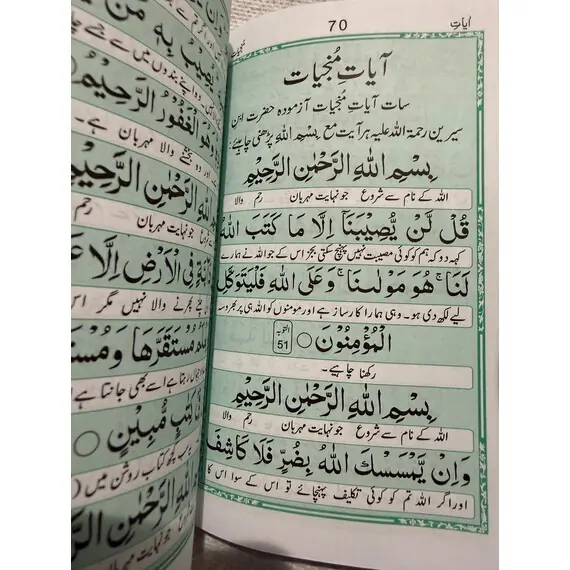 70
آیاتِ
آیاتِ مُنجیات
سات آیات منجیات آزمودہ حضرت ابنِ
سیرین رحمۃ اللہ علیہ ہر آیت مع بِسْمِ اللهِ پڑھنی چاہیے:
بِسْمِ اللهِ الرَّحْمٰنِ الرَّحِيْمِ
اللہ کے نام سے شروع جو نہایت مہربان رحم والا
قُلْ لَّنْ يُّصِيْبَنَاۤ اِلَّا مَا كَتَبَ اللهُ
کہہ دو کہ ہم کو کوئی مصیبت نہیں پہنچ سکتی بجز اس کے جو اللہ نے ہمارے
لَنَا ۚ هُوَ مَوْلٰىنَا ۚ وَعَلَى اللهِ فَلْيَتَوَكَّلِ
لیے لکھ دی ہو۔ وہی ہمارا کارساز ہے اور مومنوں کو اللہ ہی پر بھروسہ
الْمُؤْمِنُوْنَ ○ التوبہ 51
رکھنا چاہیے۔
بِسْمِ اللهِ الرَّحْمٰنِ الرَّحِيْمِ
اللہ کے نام سے شروع جو نہایت مہربان رحم والا
وَاِنْ يَّمْسَسْكَ اللهُ بِضُرٍّ فَلَا كَاشِفَ
اور اگر اللہ تم کو کوئی تکلیف پہنچائے تو اس کے سوا اس کا
يُصِيْبُ بِهٖ مَنْ
وَهُوَ الْغَفُوْرُ الرَّحِيْمُ
اور وہ بخشنے والا مہربان ہے۔
اللهِ الرَّحْمٰنِ الرَّحِيْمِ
جو نہایت مہربان رحم
فِى الْاَرْضِ اِلَّا
پھرنے والا نہیں مگر اس
مُسْتَقَرَّهَا وَمُسْتَ
رہتا ہے اسے بھی جانتا ہے
كِتٰبٍ مُّبِيْنٍ ○
سب کچھ کتاب روشن میں
اللهِ الرَّحْمٰنِ الرَّحِيْمِ